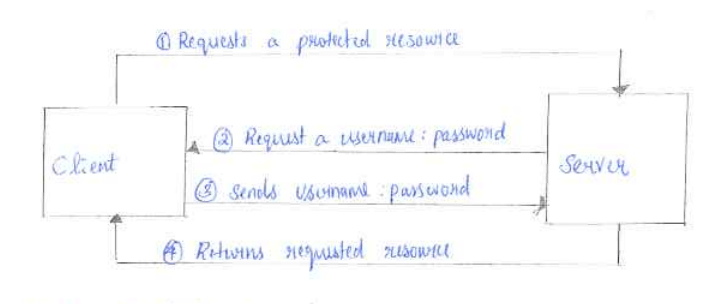 ① Requests a protected resource
② Request a username : password
Client
Server
③ Sends username : password
④ Returns requested resource